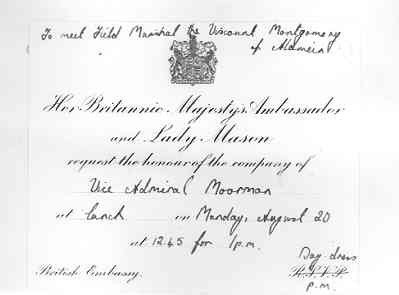 To meet Field Marshal the Viscount Montgomery
of Alamein
Her Britannic Majesty's Ambassador
and Lady Mason
request the honour of the company of
Vice Admiral Moorman
at lunch on Monday, August 20
at 12.45 for 1p.m.
Day dress
British Embassy. R.S.V.P.
p.m.